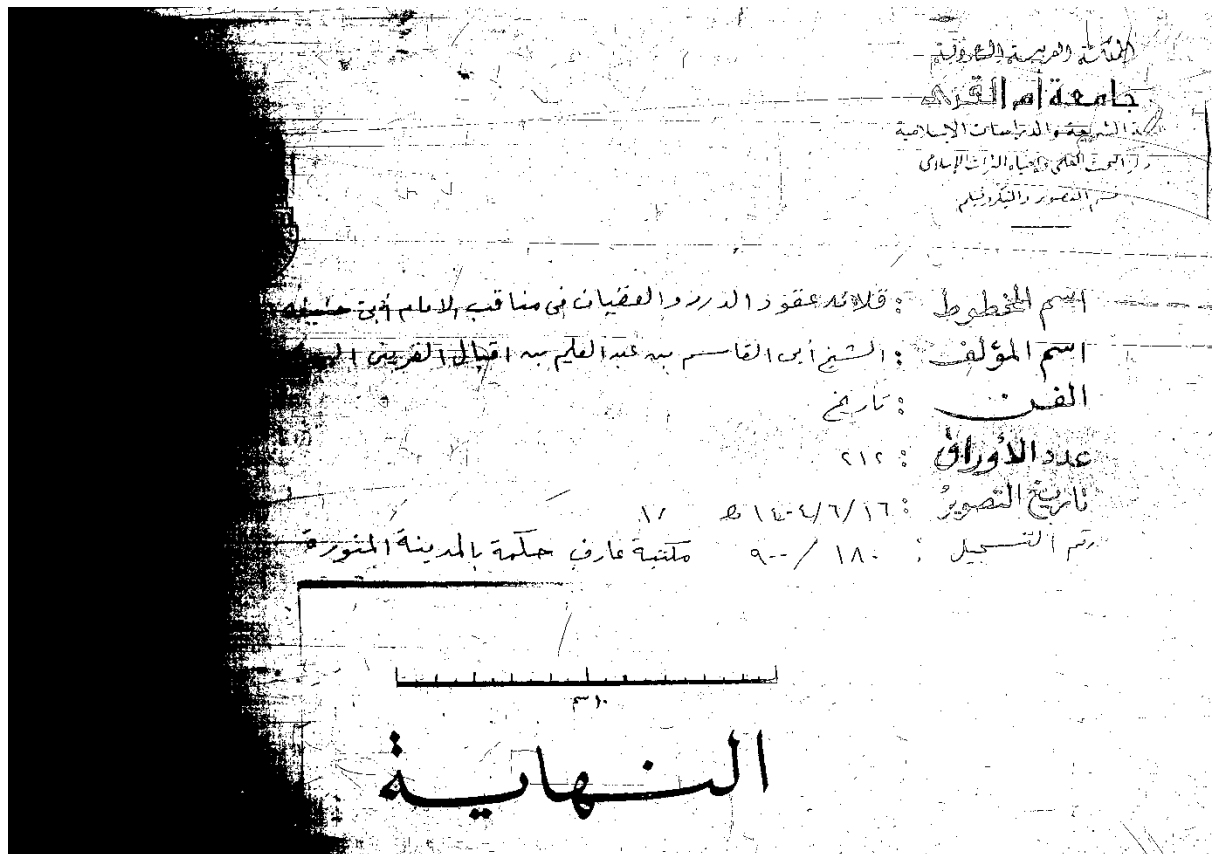 المملكة العربية السعودية
جامعة أم القرى
الشريعة والدراسات الإسلامية
مركز البحث العلمي وإحياء التراث الإسلامي
قسم التصوير والميكروفيلم
اسم المخطوط : قلائد عقود الدرر والعقيان في مناقب الامام أبي حنيفه
اسم المؤلف : الشيخ أبى القاسم بن عبد العليم بن اقبال القربتى
الفن : تاريخ
عدد الأوراق : ٢١٢
تاريخ التصوير : ١٤٠٤/٦/١٦ ه
رقم التسجيل : ١٨٠ / ٩٠٠ مكتبة عارف حكمة بالمدينة المنورة
١٠ سم
النهاية